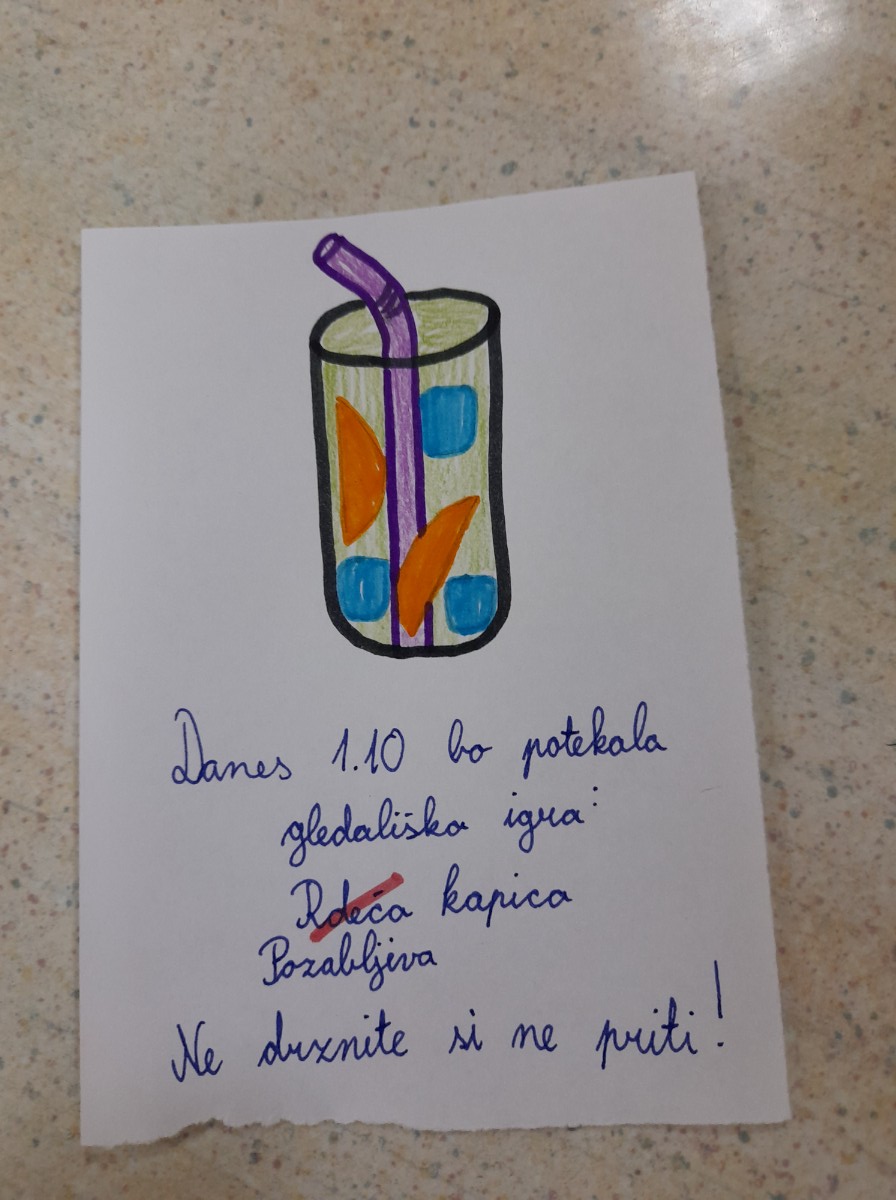 Danes 1.10 bo potekala
gledališka igra:
Rdeča kapica
Pozabljiva
Ne drznite si ne priti!